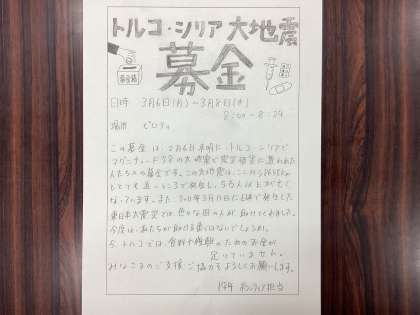 トルコ・シリア 大地震
募金
募金箱
日時 3月6日(月)~3月8日(水)
8:00~8:24
場所 ピロティ
この募金は、2月6日未明に、トルコ・シリアで
マグニチュード7.8の大地震で
人たちへの募金です。この大地震は、ここから
とても遠いところで発生し、5万人以上が亡く
なっています。また2011年3月11日に日本で発生した
東日本大震災では、色々な国の人が助けてくれました。
今度は、私たちが助ける番ではないでしょうか。
今、トルコでは、食料や
のためのお金が
足りていません。
みなさまのご支援ご協力をよろしくお願いします。
ボランティア担当